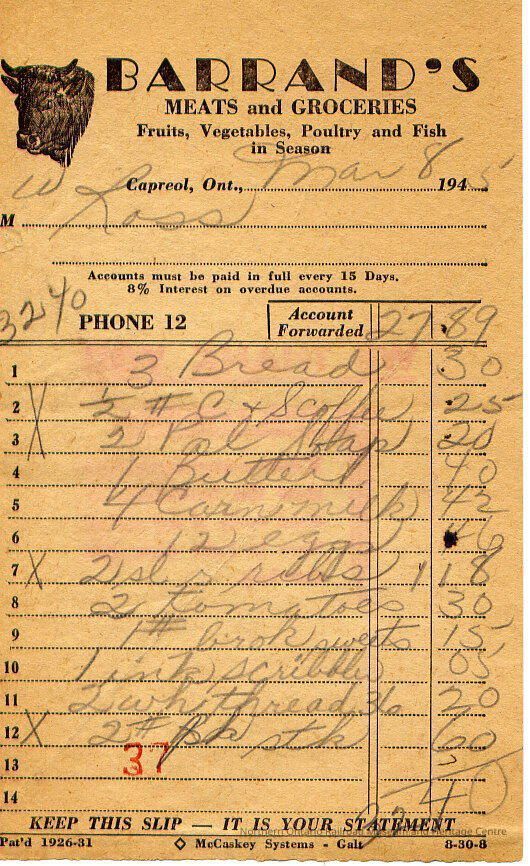 BARRAND'S
MEATS and GROCERIES
Fruits, Vegetables, Poultry and Fish
in Season
Capreol, Ont., Mar 8 1945
M W Ross
Accounts must be paid in full every 15 Days.
8% Interest on overdue accounts.
3240 PHONE 12 Account Forwarded 27.89
1 3 Bread 30
2 X ½ # C & S Coffee 25
3 2 Pal Soap 20
4 1 Butter 40
5 4 Carn milk 42
6 12 eggs 46
7 X 2 ribs 1 18
8 2 tomatoes 30
9 1# brok sweets 15
10 1 ink scribbler 05
11 2 wh thread 36 20
12 X 2# stk 60
13 37
14 32 40
KEEP THIS SLIP — IT IS YOUR STATEMENT
Northern Ontario Railroad Museum and Heritage Centre
Pat'd 1926-31 McCaskey Systems - Galt 8-30-8